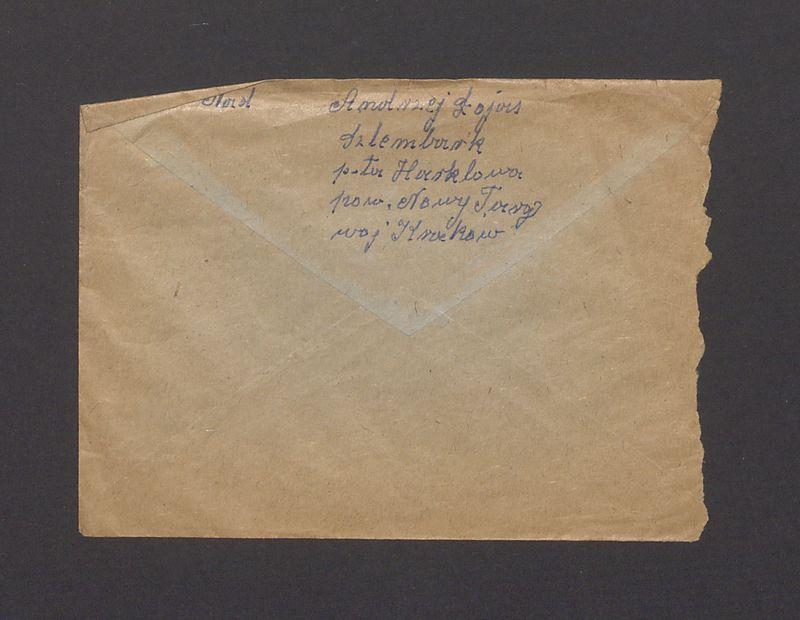 Nad Andrzej Łojas
Szlembark
p-ta Harklowa
pow. Nowy Targ
woj Kraków